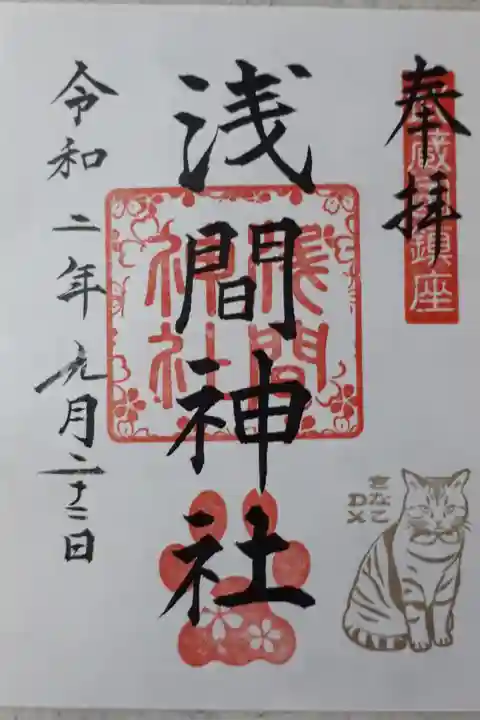 奉拝
蔵 鎮座
浅間神社
浅間
神社
令和二年九月二十二日
きなこ
DX